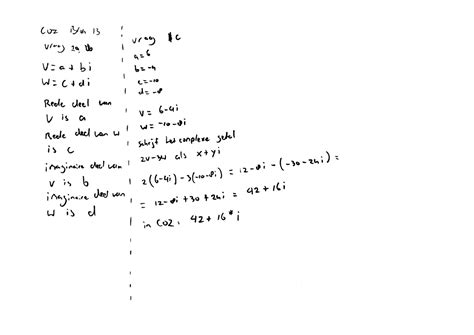 COZ
vraag 2a 1b
V = a + bi
W = c + di
Reële deel van
V is a
Reële deel van W
is c
imaginaire deel van
V is b
imaginaire deel van
W is d
vraag 1c
a = 6
b = -4
c = -10
d = -8
V = 6 - 4i
W = -10 - 8i
Schrijf het complexe getal
2v - 3w als x + yi
2(6-4i) - 3(-10-8i) = 12 - 8i - (-30 - 24i) =
= 12 - 8i + 30 + 24i = 42 + 16i
in COZ: 42 + 16 * i